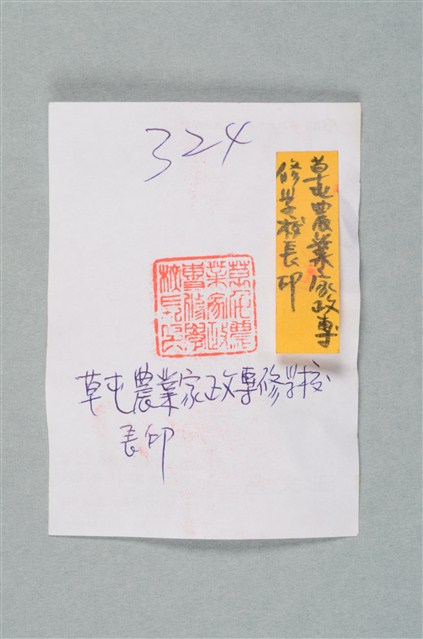 324
草屯農業家政專
修学校長印
草屯農
業家政
專修學
校長印
草屯農業家政專修学校
長印